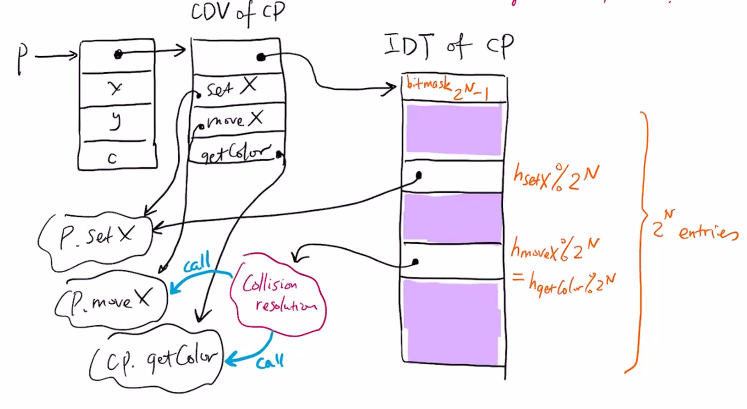 CDV of CP
IDT of CP
P
x
y
c
set X
move X
getColor
bitmask 2^N-1
h_setX % 2^N
h_moveX % 2^N
= h_getColor % 2^N
2^N entries
P. set X
CP. move X
CP. getColor
call
Collision
resolution
call